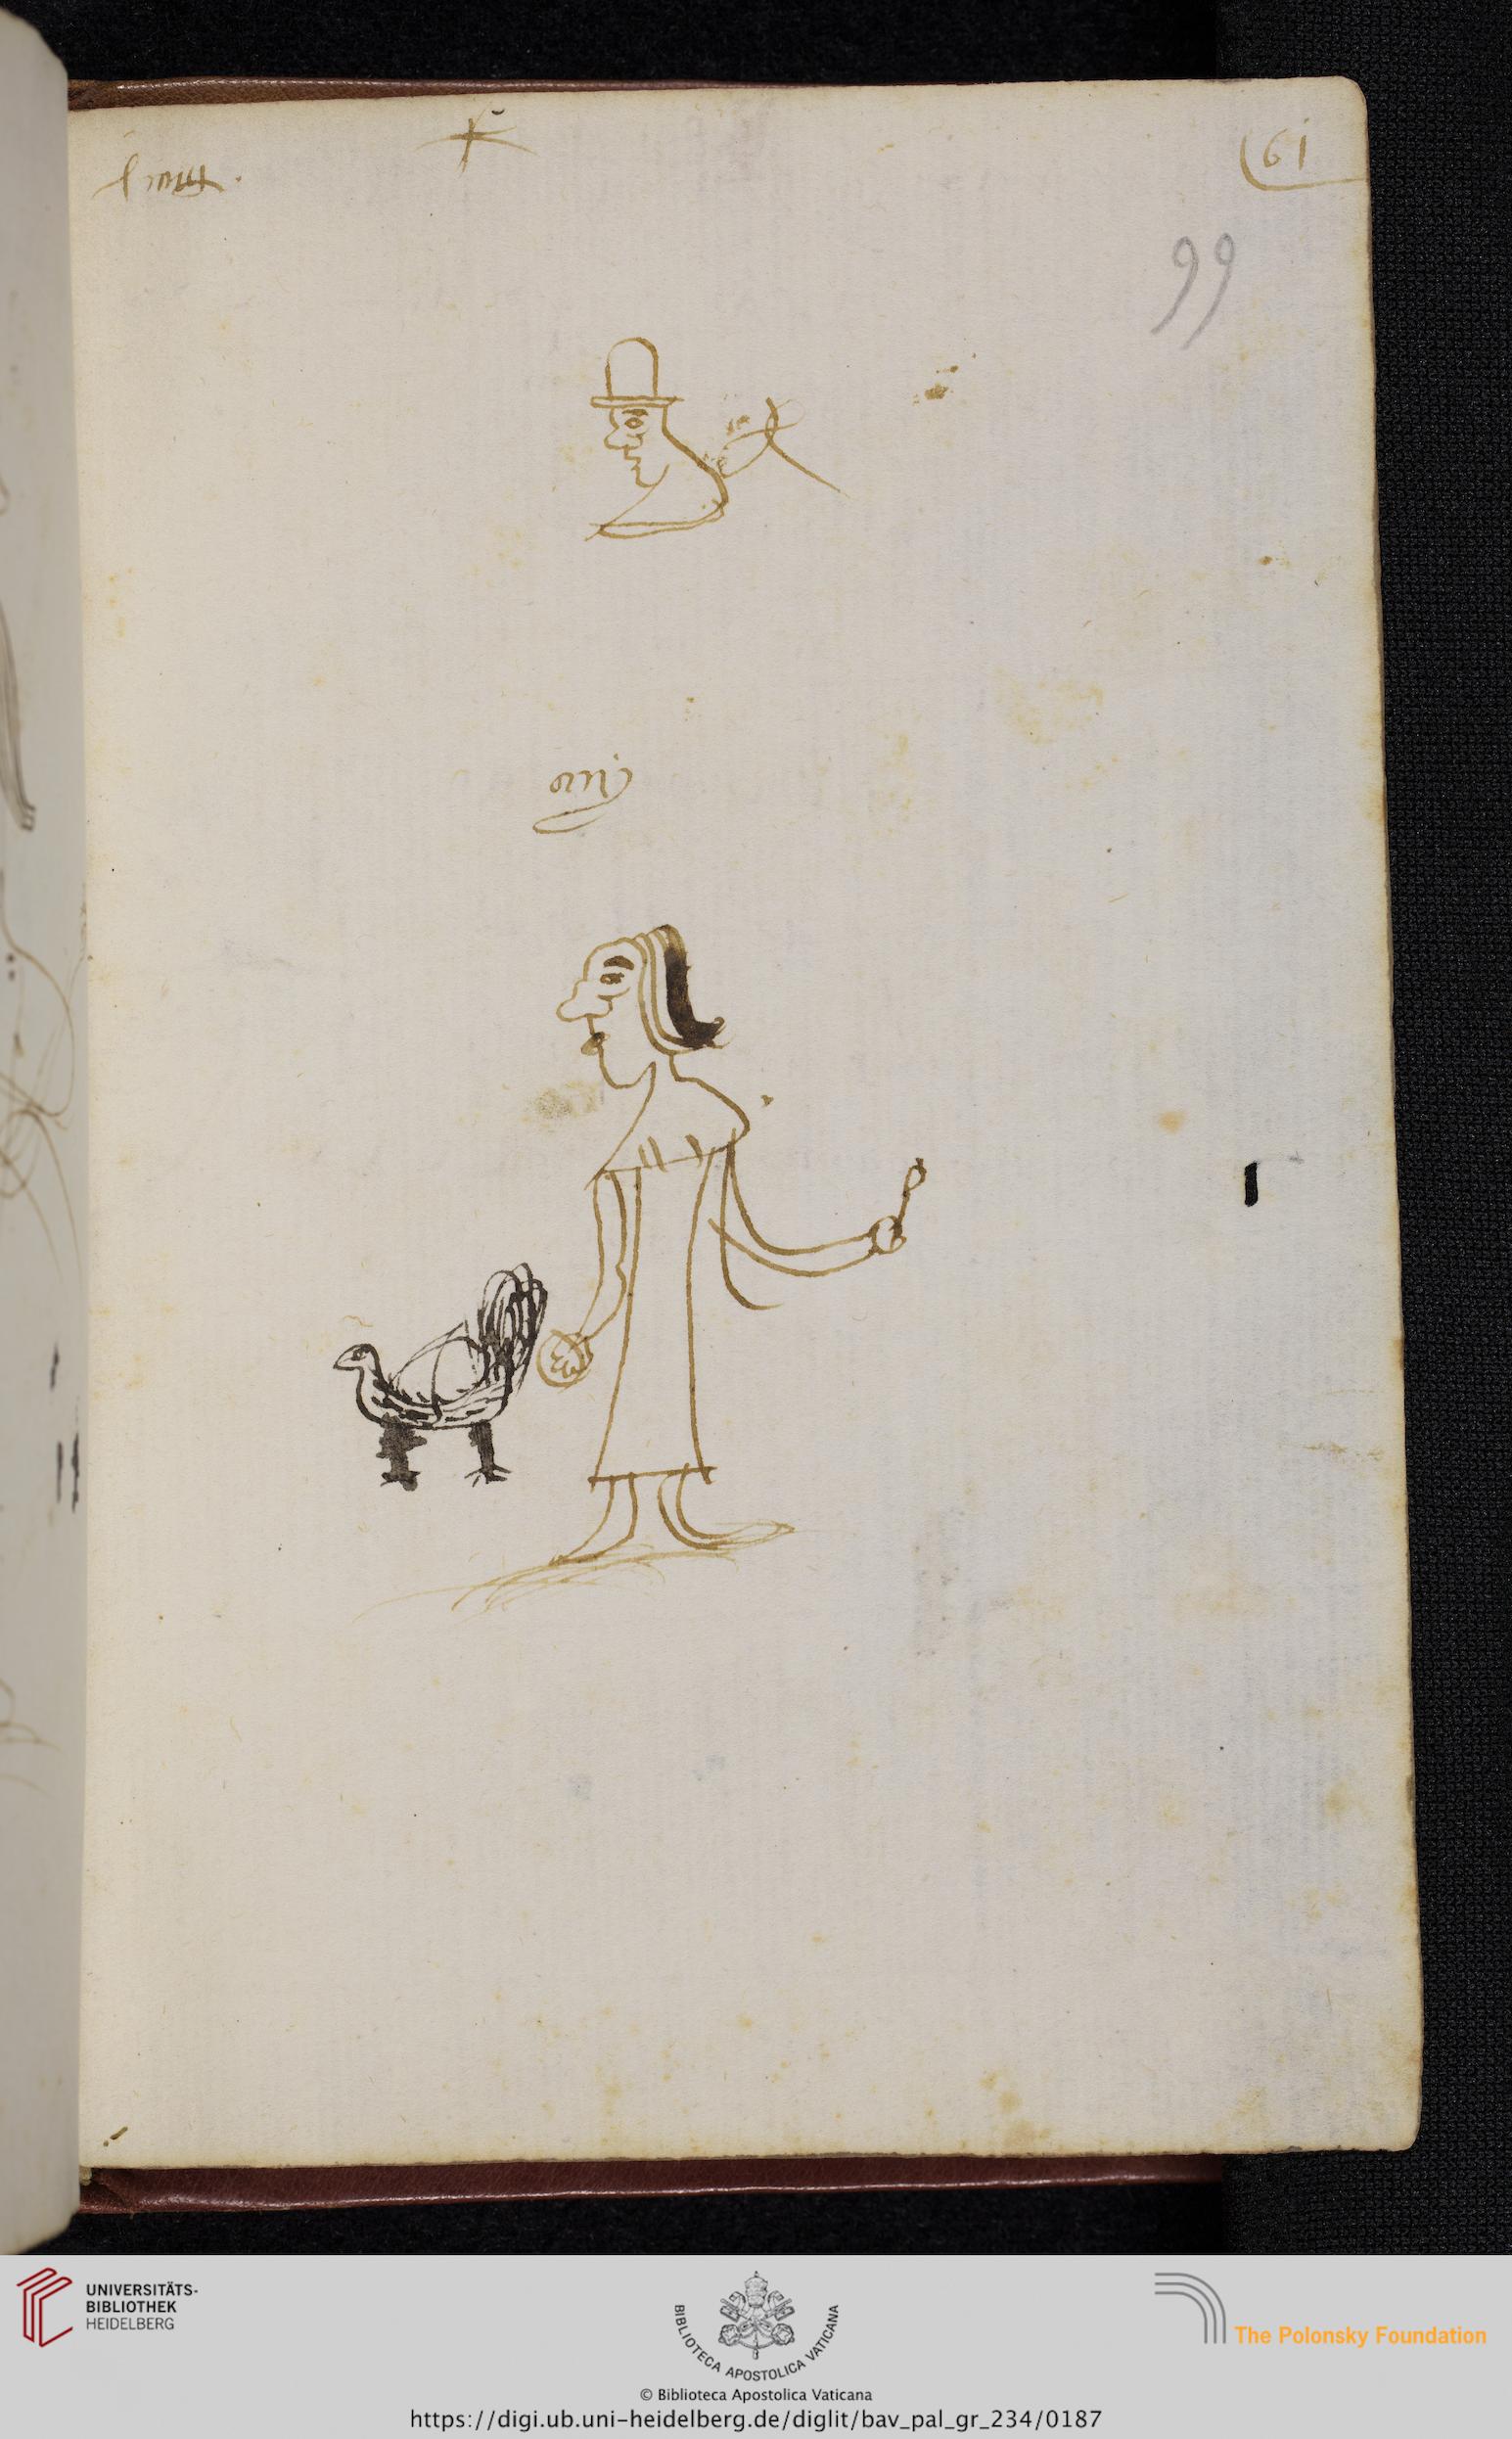 61
99
UNIVERSITÄTS-
BIBLIOTHEK
HEIDELBERG
BIBLIOTECA APOSTOLICA VATICANA
The Polonsky Foundation
© Biblioteca Apostolica Vaticana
https://digi.ub.uni-heidelberg.de/diglit/bav_pal_gr_234/0187